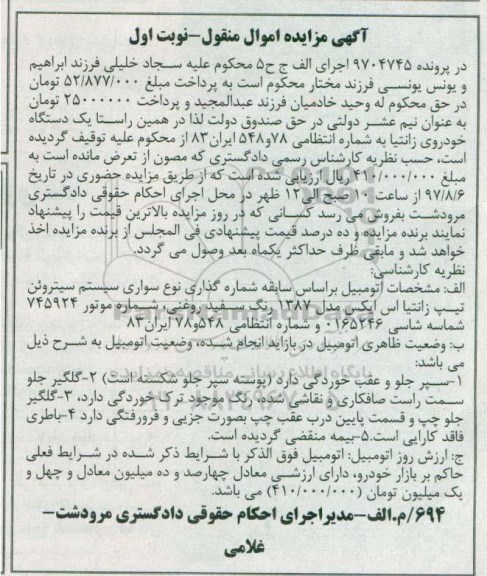 آگهی مزایده اموال منقول-نوبت اول
در پرونده ۹۷۰۴۷۴۵ اجرای الف ج ح۵ محکوم علیه سجاد خلیلی فرزند ابراهیم
و یونس یونسی فرزند مختار محکوم است به پرداخت مبلغ ۵۲/۸۷۷/۰۰۰ تومان
در حق محکوم له وحید خادمیان فرزند عبدالمجید و پرداخت ۲۵۰۰۰۰۰۰ تومان
به عنوان نیم عشر دولتی در حق صندوق دولت لذا در همین راستا یک دستگاه
خودروی زانتیا به شماره انتظامی ۷۸و۵۴۸ ایران۸۳ از محکوم علیه توقیف گردیده
است، حسب نظریه کارشناس رسمی دادگستری که مصون از تعرض مانده است به
مبلغ ۴۱۰/۰۰۰/۰۰۰ ریال ارزیابی شده است که از طریق مزایده حضوری در تاریخ
۹۷/۸/۶ از ساعت ۱۱ صبح الی۱۲ ظهر در محل اجرای احکام حقوقی دادگستری
مرودشت بفروش می رسد کسانی که در روز مزایده بالاترین قیمت را پیشنهاد
نمایند برنده مزایده و ده درصد قیمت پیشنهادی فی المجلس از برنده مزایده اخذ
خواهد شد و مابقی ظرف حداکثر یکماه بعد وصول می گردد.
نظریه کارشناسی:
الف: مشخصات اتومبیل براساس سابقه شماره گذاری نوع سواری سیستم سیتروئن
تیپ زانتیا اس ایکس مدل ۱۳۸۷ رنگ سفید روغنی، شماره موتور ۷۴۵۹۲۴
شماسه شاسی ۰۱۶۵۲۴۶ و شماره انتظامی ۵۴۸و۷۸ ایران۸۳
ب: وضعیت ظاهری اتومبیل در بازاید انجام شده، وضعیت اتومبیل به شرح ذیل
می باشد:
۱-سپر جلو و عقب خوردگی دارد (پوسته سپر جلو شکسته است) ۲-گلگیر جلو
سمت راست صافکاری و نقاشی شده، رنگ موجود ترک خوردگی دارد، ۳-گلگیر
جلو چپ و قسمت پایین درب عقب چپ بصورت جزیی و فرورفتگی دارد ۴-باطری
فاقد کارایی است.۵-بیمه منقضی گردیده است.
ج: ارزش روز اتومبیل: اتومبیل فوق الذکر با شرایط ذکر شده در شرایط فعلی
حاکم بر بازار خودرو، دارای ارزشی معادل چهارصد و ده میلیون معادل و چهل و
یک میلیون تومان (۴۱۰/۰۰۰/۰۰۰) می باشد.
۶۹۴/م.الف-مدیراجرای احکام حقوقی دادگستری مرودشت-
غلامی